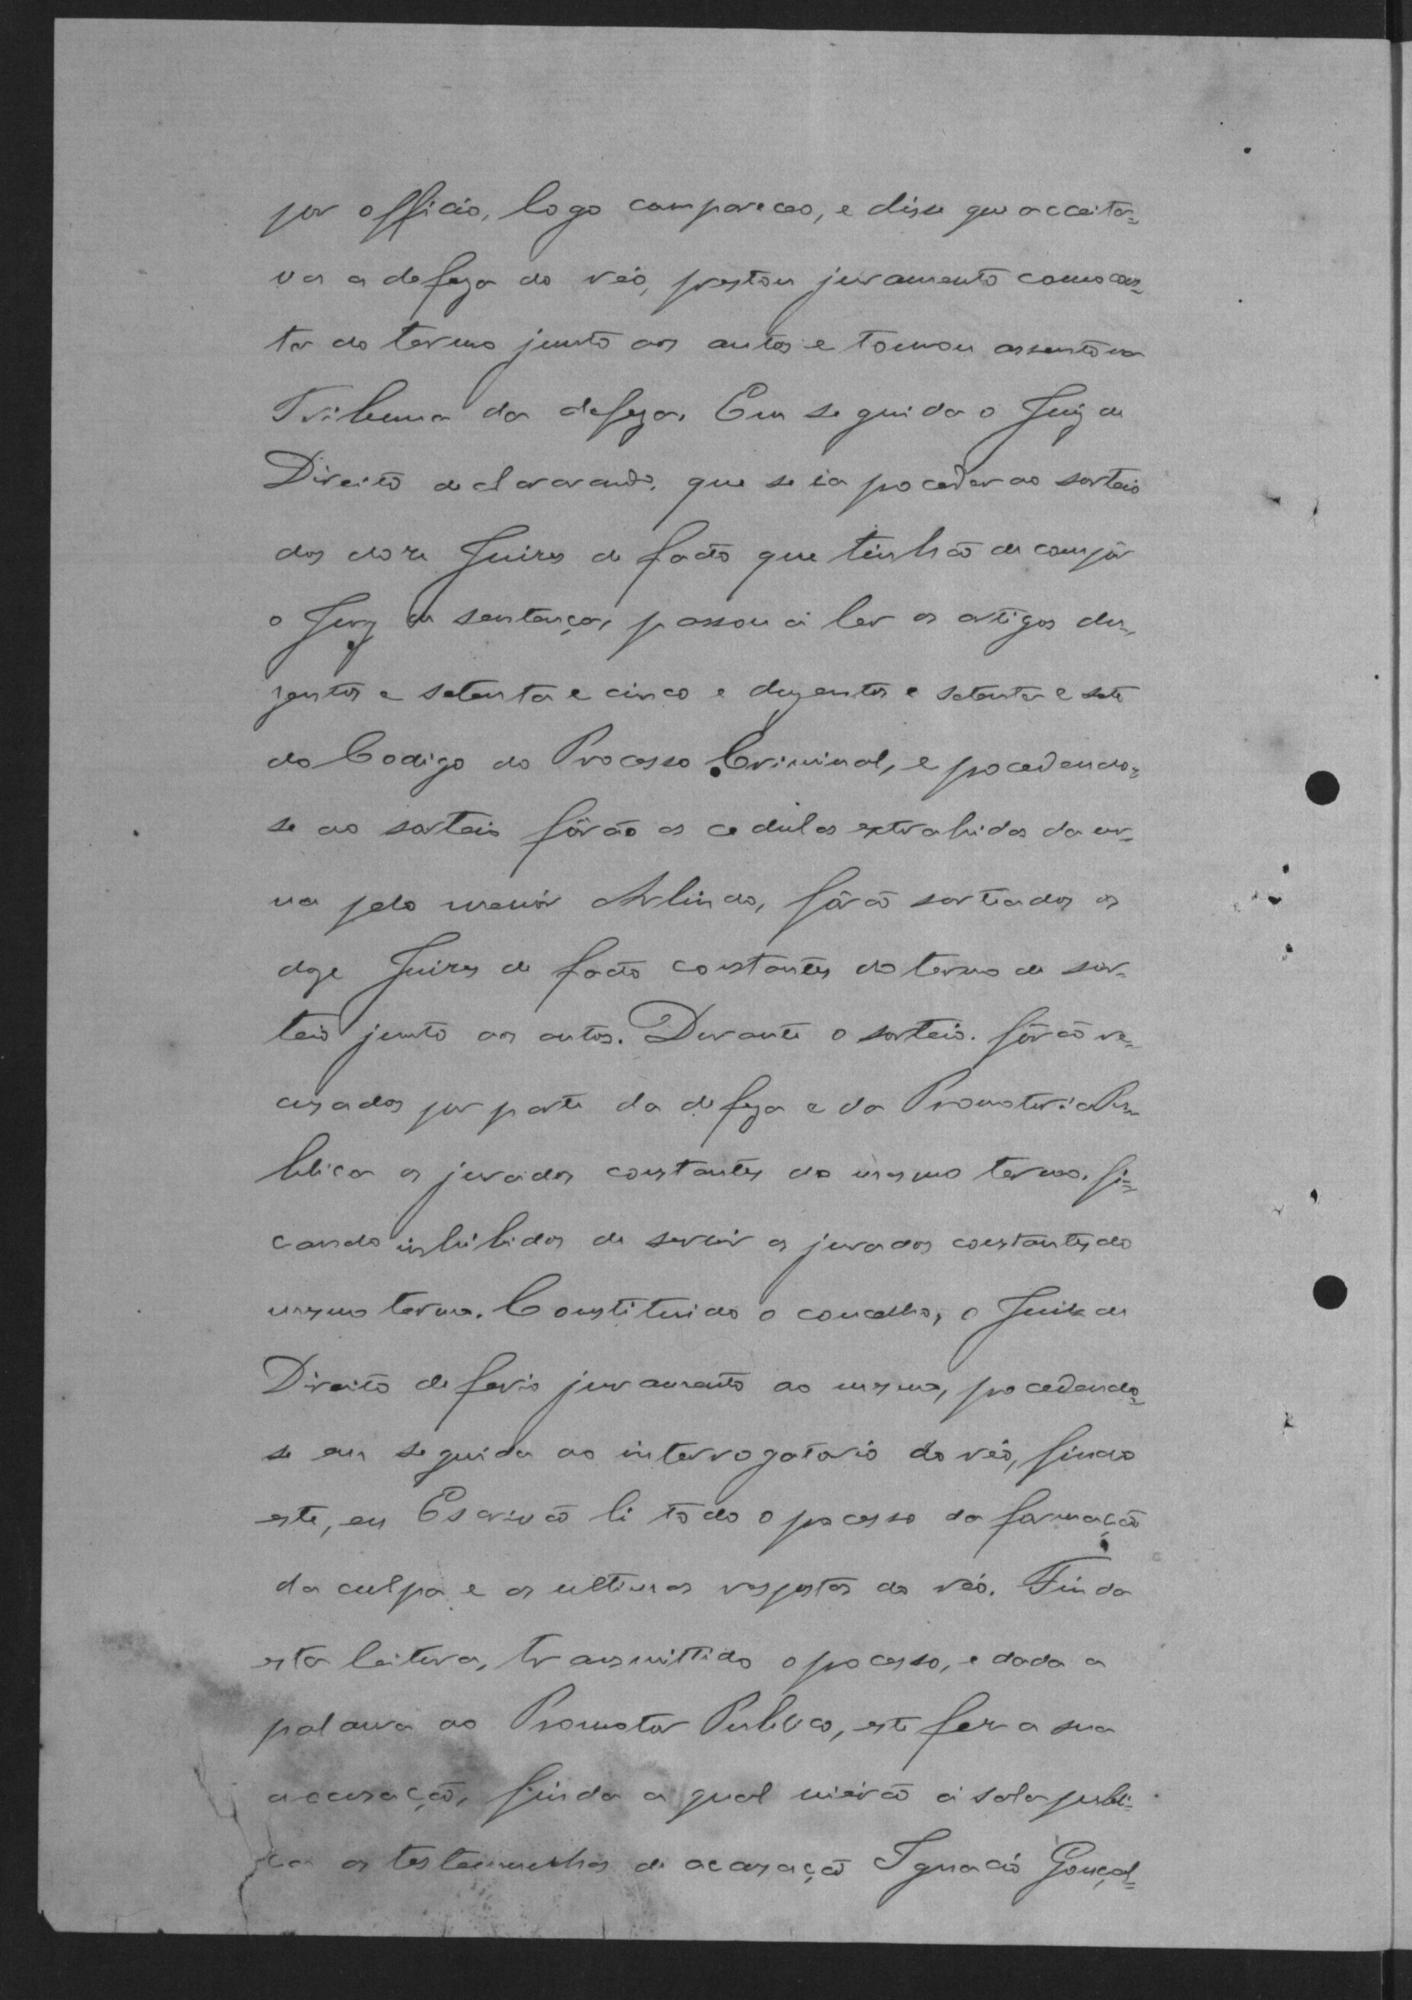 por officio, logo compareceo, e disse que acceita=
va a defeza do réo, prestou juramento como cons=
ta do termo junto aos autos e tomou assento na
Tribuna da defeza. Em seguida o Juiz de
Direito declarando, que se ia proceder ao sorteio
dos doze Juizes de facto que tinhão de compôr
o Jury de sentença, passou a ler os artigos du=
zentos e setenta e cinco e duzentos e setenta e sete
do Codigo do Processo Criminal, e procedendo=
se ao sorteio fôrão as cedulas extrahidas da ur=
na pelo menór Arlindo, fôrão sorteados os
doze Juizes de facto constantes do termo de sor=
teio junto aos autos. Durante o sorteio. fôrão re=
cuzados por parte da defeza e da Promotoria Pu=
blica os jurados constantes do mesmo termo. fi=
cando inhibidos de servir os jurados constantes do
mesmo termo. Constituido o concelho, o Juiz de
Direito deferio juramento ao mesmo, procedendo=
se em seguida ao interrogatorio do réo, findo
este, eu Escrivão li todo o processo da formação
da culpa e as ultimas respostas do réo. Finda
esta leitura, transmittido o processo, e dada a
palavra ao Promotor Publico, este fez a sua
accusação, finda a qual vierão á sala publi=
ca as testemunhas de acusação Ignacio Gonçal=